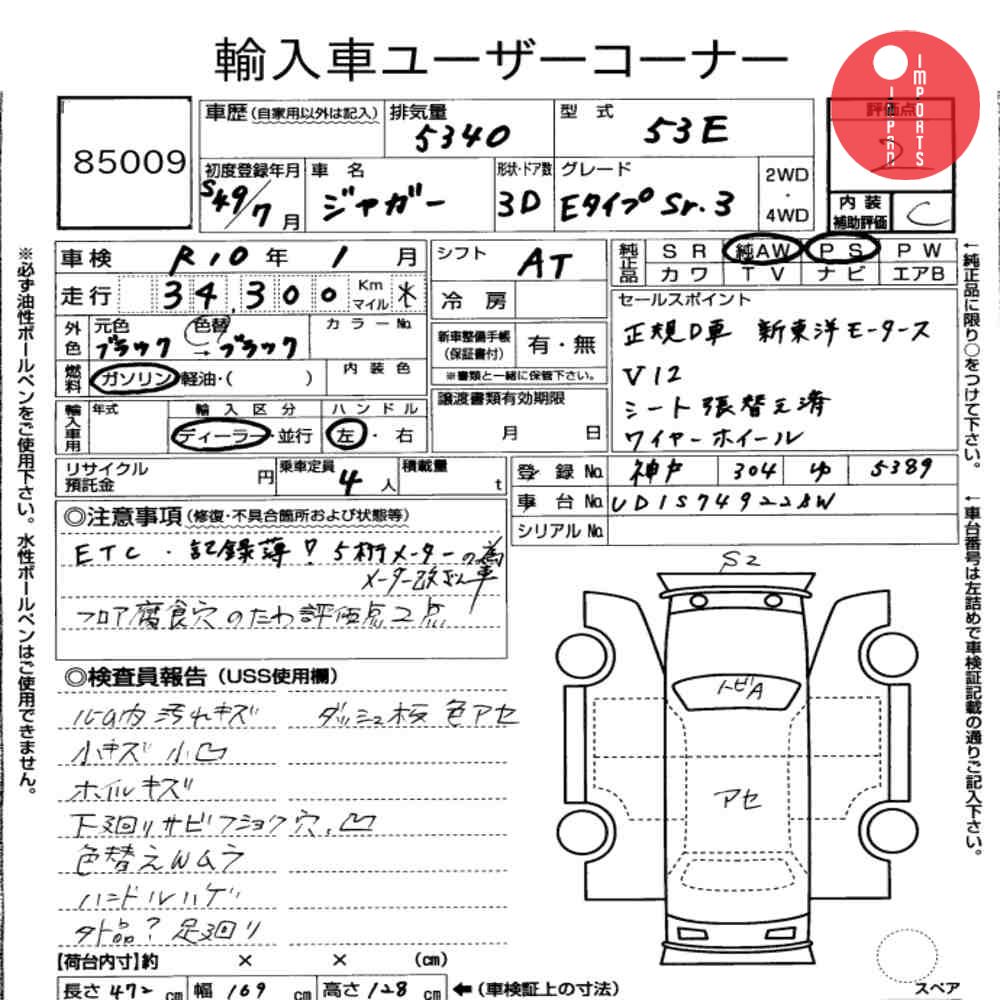 輸入車ユーザーコーナー
IMPORTS
JAPAN
85009
車歴(自家用以外は記入)
排気量
5340
型式
53E
評価点
2
初度登録年月
S49/7月
車名
ジャガー
形状・ドア数
3D
グレード
Eタイプ Sr.3
2WD
・
4WD
内装
補助評価
C
車検 R10年 1月
走行 34,300 Km マイル
シフト AT
冷房
純正品
SR 純AW PS PW
カワ TV ナビ エアB
外色
元色 ブラック
色替 → ブラック
カラーNo.
内装色
燃料
ガソリン・軽油・( )
新車整備手帳
(保証書付)
有・無
※書類と一緒に保管下さい。
セールスポイント
正規D車 新東洋モータース
V12
シート張替え済
ワイヤーホイール
輸入車用
年式
輸入区分
ディーラー・並行
ハンドル
左・右
譲渡書類有効期限
月 日
リサイクル
預託金
円
乗車定員
4人
積載量
t
登録No. 神戸 304 ゆ 5389
車台No. UD1S74922BW
シリアルNo.
◎注意事項(修復・不具合箇所および状態等)
ETC・記録簿! 5桁メーターの為
メーター改ざん車
フロア腐食穴のため評価点2点
◎検査員報告(USS使用欄)
ル内汚れキズ ダッシュ板色アセ
小キズ 小凹
ホイルキズ
下廻りサビフショク穴、凹
色替えWムラ
ハンドルハゲ
外品?足廻り
【荷台内寸】約 × × (cm)
長さ 472 cm 幅 169 cm 高さ 128 cm ←(車検証上の寸法)
S2
トビA
アセ
スペア
※必ず油性ボールペンをご使用下さい。水性ボールペンはご使用できません。
←純正品に限り○をつけて下さい。
←車台番号は左詰めで車検証記載の通りご記入下さい。